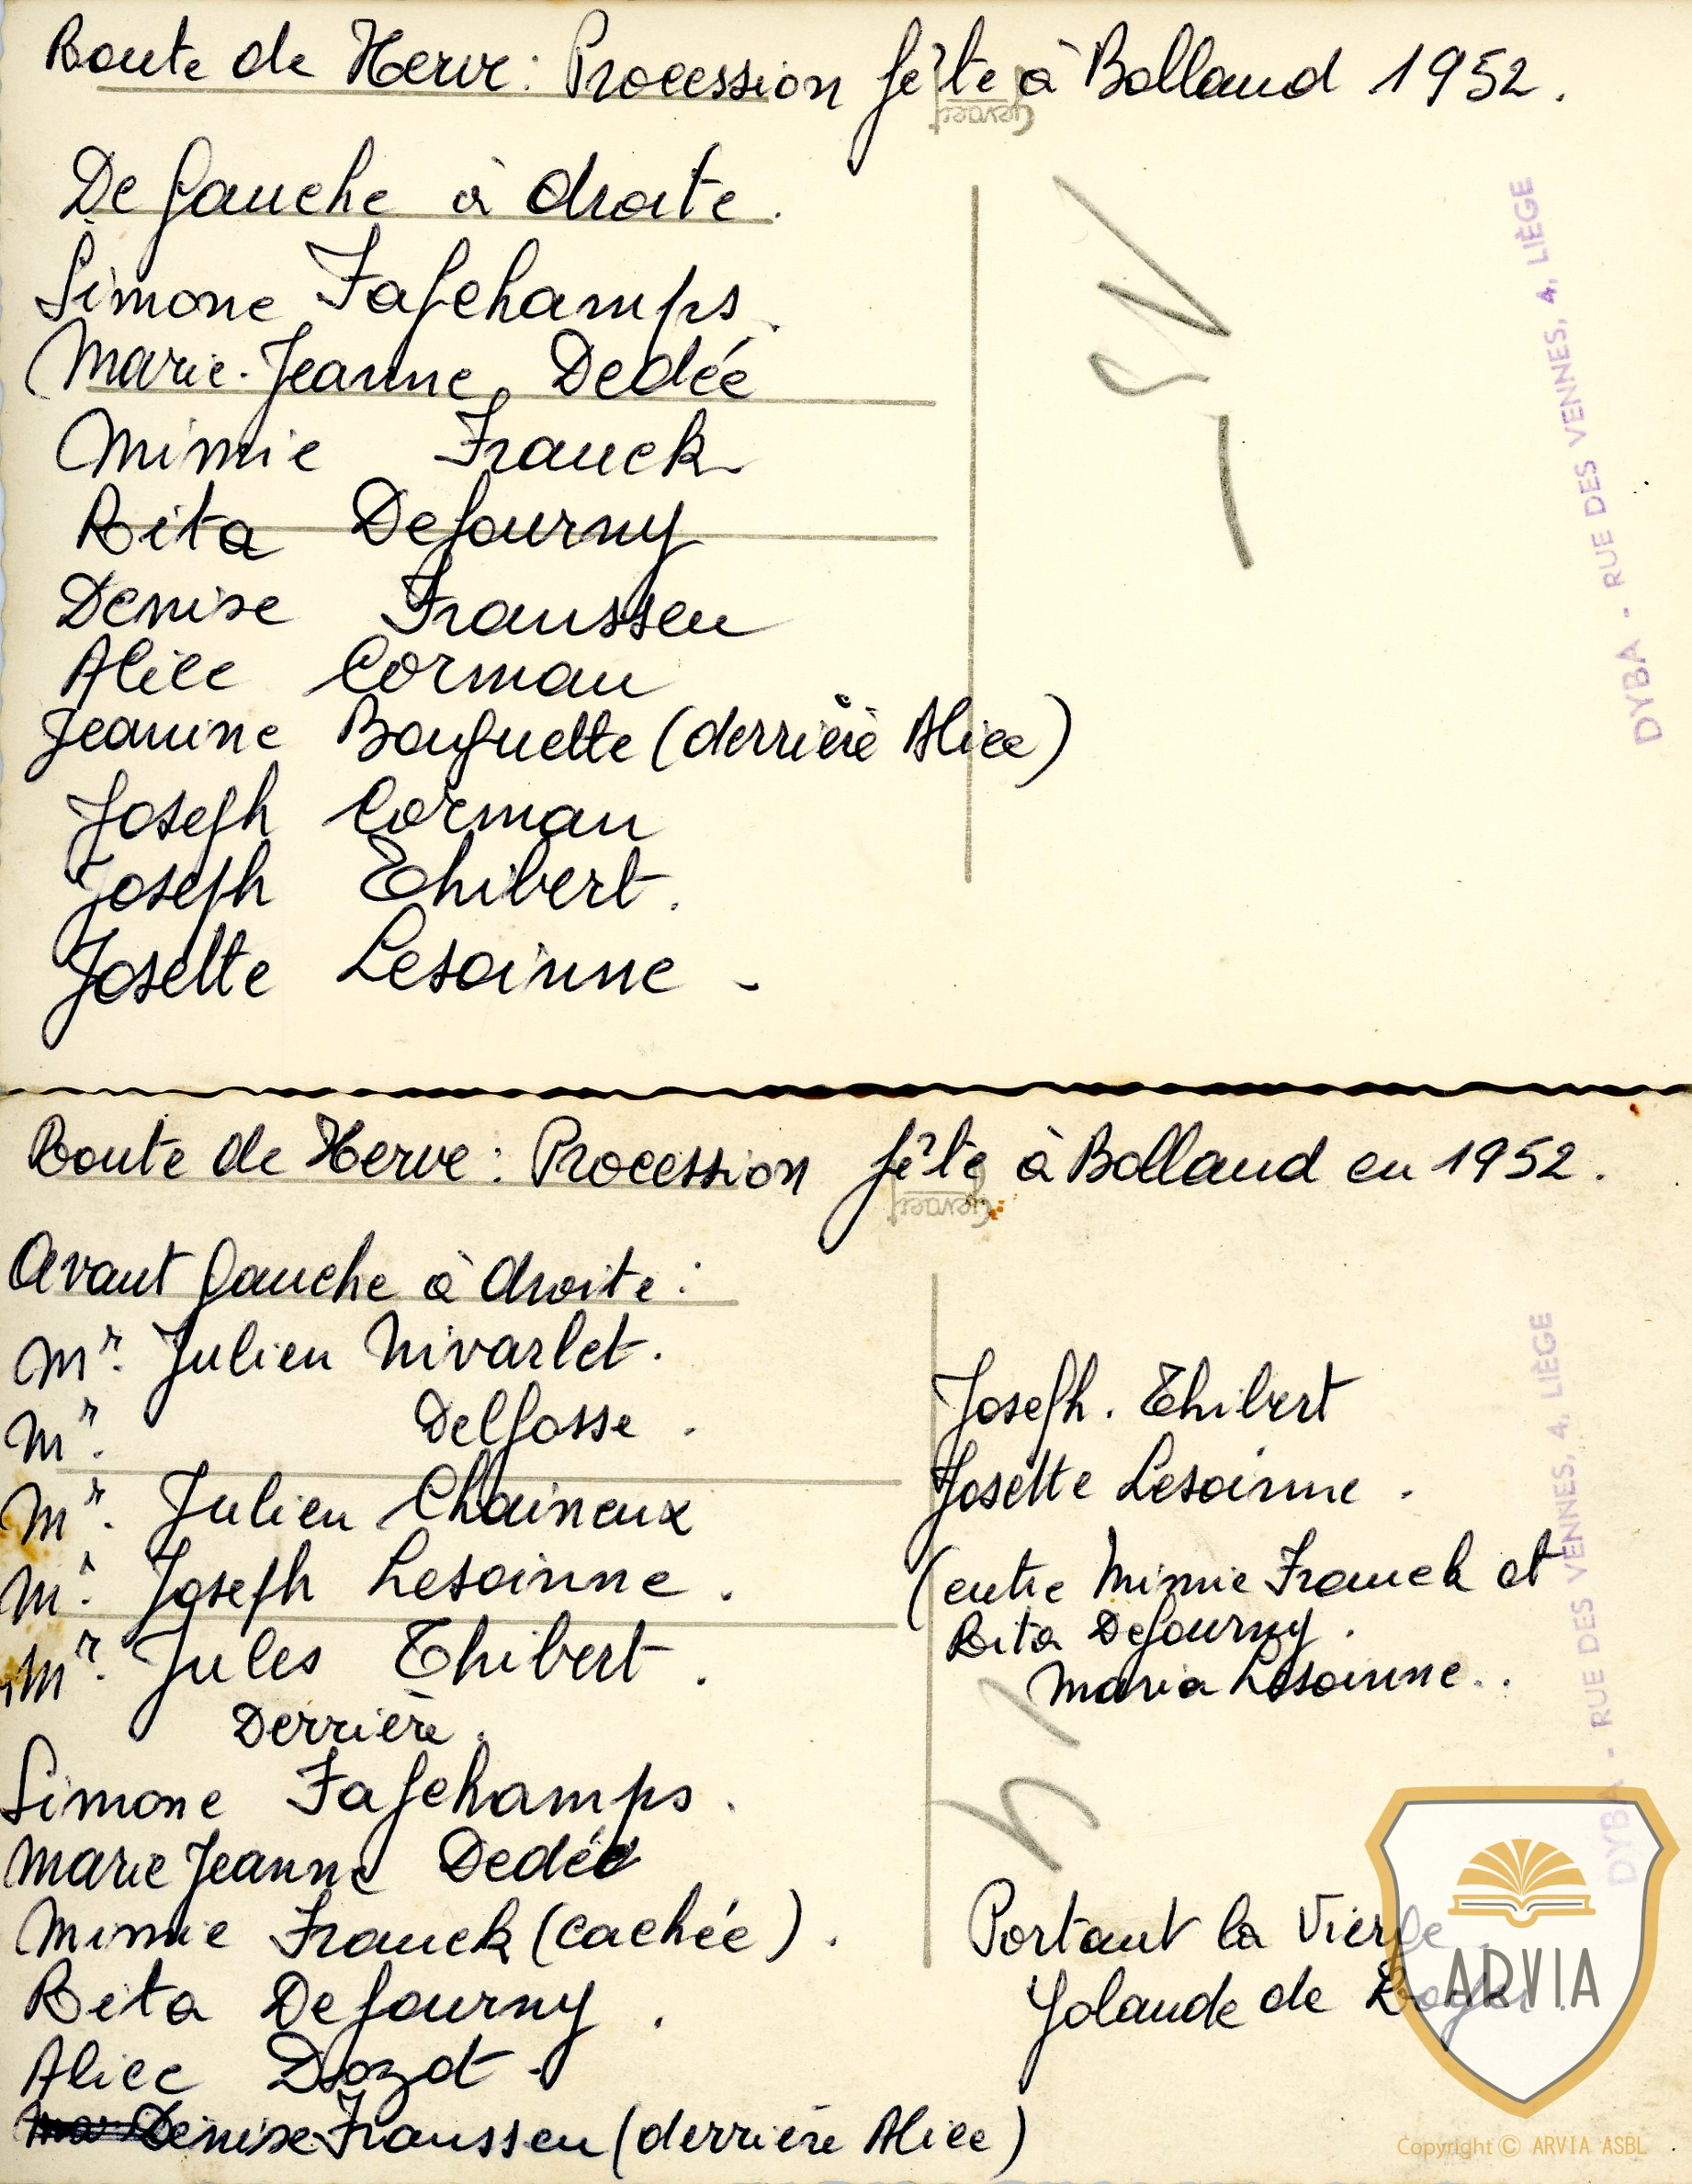 Route de Herve : Procession fête à Bolland 1952.
Gevaert
De gauche à droite.
Simone Fafchamps.
Marie-Jeanne Dedée
Mimie Franck
Rita Defourny
Denise Franssen
Alice Corman
Jeanine Bouguette (derrière Alice)
Joseph Corman
Joseph Thibert.
Josette Lesoinne -
DYBA - RUE DES VENNES, 4, LIÈGE
Route de Herve : Procession fête à Bolland en 1952.
Gevaert
Avant gauche à droite :
Mr. Julien Nivarlet.
Mr. Delfosse.
Mr. Julien Chaineux
Mr. Joseph Lesoinne.
Mr. Jules Thibert.
Derrière.
Simone Fafchamps.
Marie Jeanne Dedée
Mimie Franck (cachée).
Rita Defourny.
Alice Dozot -
Denise Franssen (derrière Alice)
Joseph. Thibert
Josette Lesoinne.
(entre Mimie Franck et
Rita Defourny.
Maria Lesoinne..
Portant la Vierge
Yolande de
DYBA - RUE DES VENNES, 4, LIÈGE
ARVIA
Copyright © ARVIA ASBL